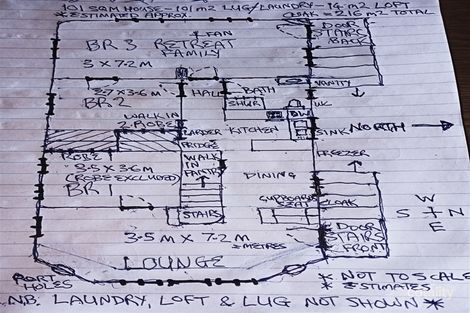 101 SQM HOUSE - 101 M2 LUG/LAUNDRY - 14 M2 LOFT
* ESTIMATED APPROX. CLOAK = 2.16 M2 TOTAL
FAN
BR 3 RETREAT
FAMILY
3 X 7.2 M
DOOR
STAIRS
BACK
HALL
BATH
VANITY
BR 2
SHWR
WALK IN
2 ROBE
LARDER
KITCHEN
DW
SINK
NORTH
FRIDGE
FREEZER
ROBE 1
3.5 X 3.6 M
(ROBE EXCLUDED)
BR 1
WALK
IN
PANTRY
DINING
CUPBOARD
CLOAK
STAIRS
W
S N
E
DOOR
STAIRS
FRONT
3.5 M X 7.2 M
* METRES
LOUNGE
PORT
HOLES
* NOT TO SCALE
* ESTIMATES
N.B. LAUNDRY, LOFT & LUG NOT SHOWN *